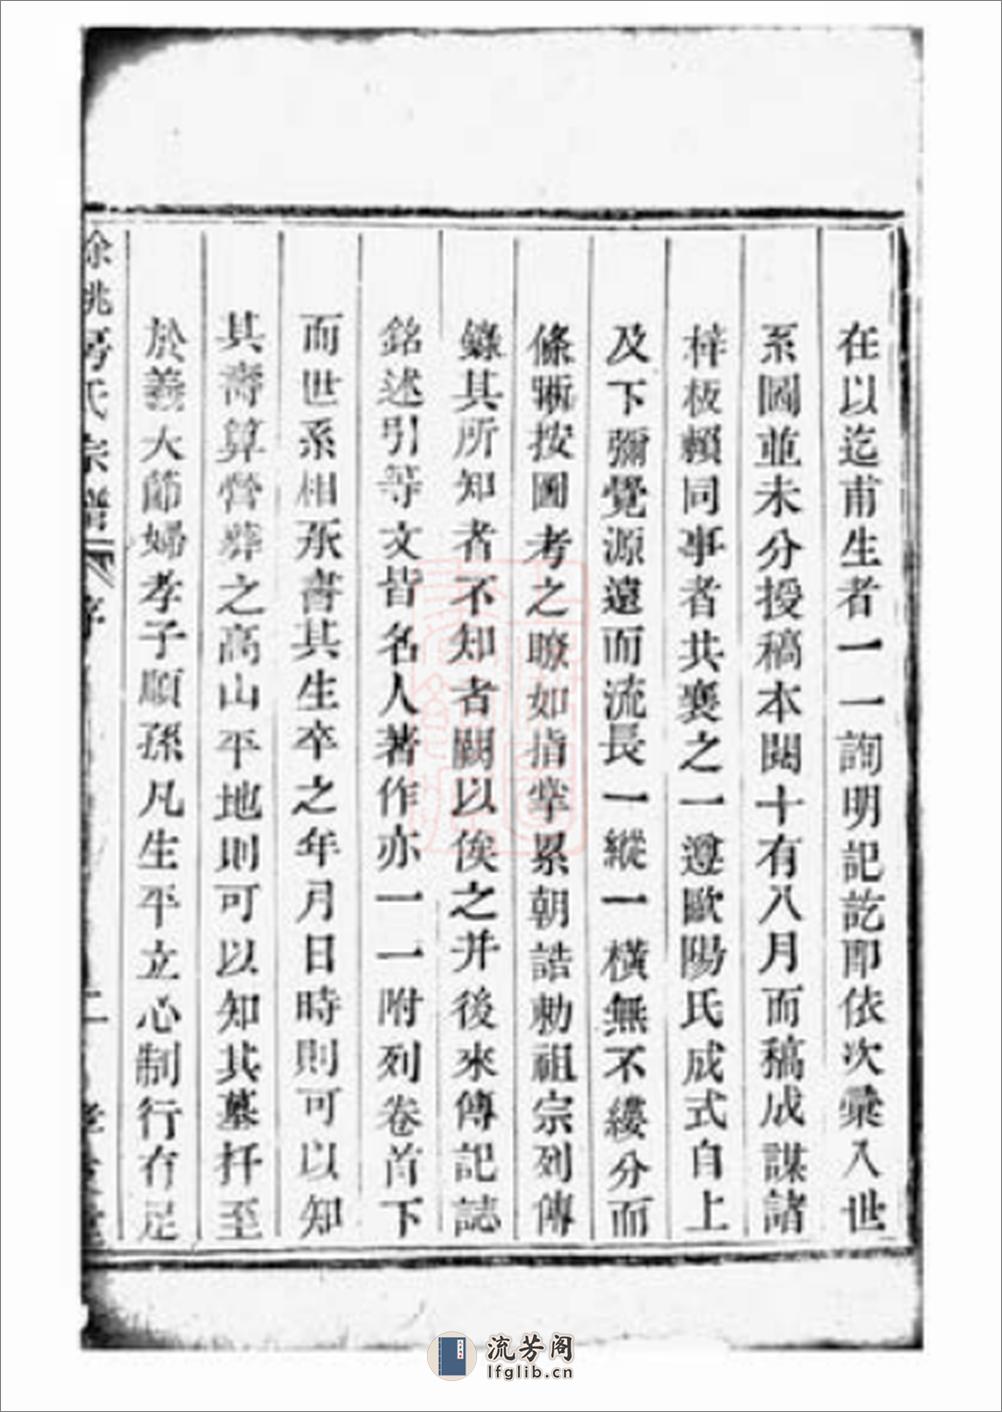 在以迄甫生者一一詢明記訖即依次彙入世
系圖並未分授稿本閱十有八月而稿成謀諸
梓板賴同事者共襄之一遵歐陽氏成式自上
及下彌覺源遠而流長一縱一橫無不縷分而
條晰按圖考之瞭如指掌累朝誥勅祖宗列傳
錄其所知者不知者闕以俟之并後來傳記誌
銘述引等文皆名人著作亦一一附列卷首下
而世系相承書其生卒之年月日時則可以知
其壽算營葬之高山平地則可以知其墓扦至
於義夫節婦孝子順孫凡生平立心制行有足
餘姚 氏宗譜 序 二
流芳阁
lfglib.cn